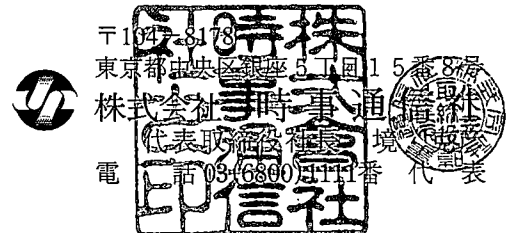 〒104-8178
東京都中央区銀座5丁目15番8号
株式会社 時事通信社
代表取締役社長 境
電 話 03(6800)1111番 代 表
株式會社
時事通信
印